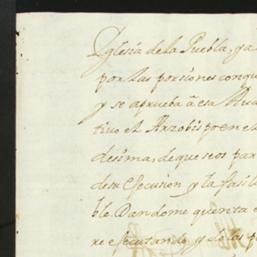 Yglesia de la Puebla, ya
por las porsiones conqu
y se aprueba â esa Au
tivo el Arzobispo en el
desima, de que os par
desu Efecusion y la fasil
ble. Dandome quenta
xe efecutando y de las p